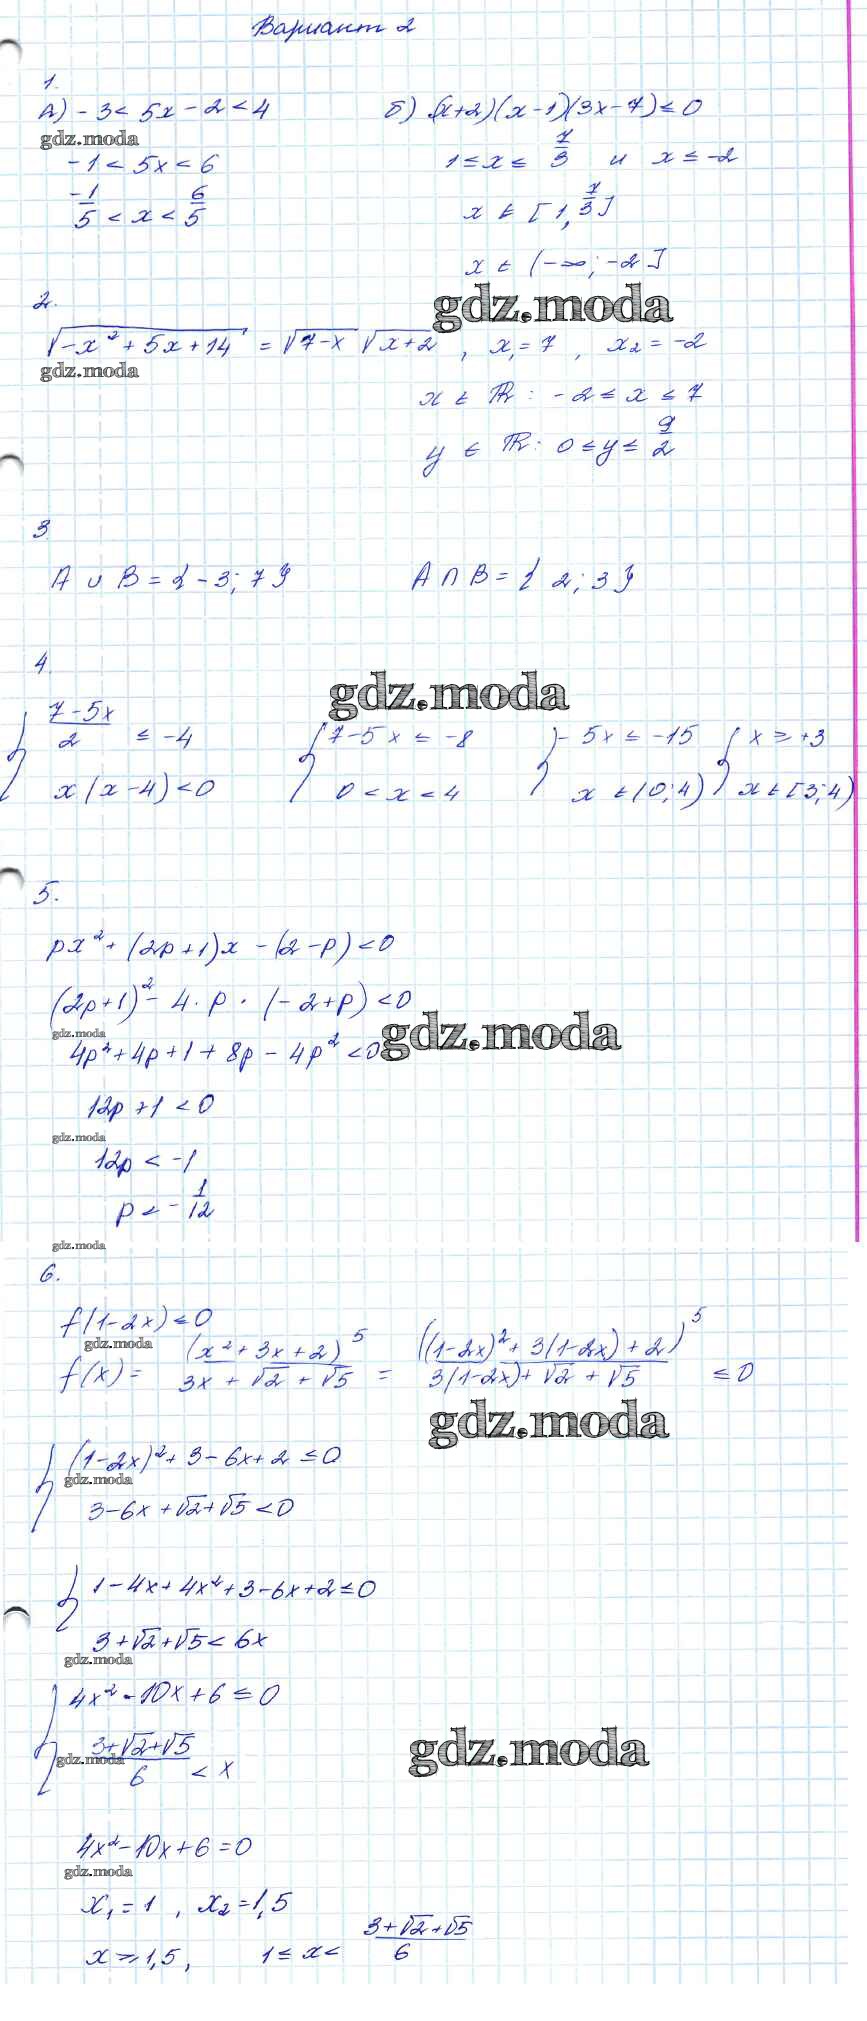 Вариант 2
1.
А) -3 < 5x - 2 < 4
gdz.moda
-1 < 5x < 6
-1/5 < x < 6/5
б) (x+2)(x-1)(3x-7) ≤ 0
1 ≤ x ≤ 7/3 и x ≤ -2
x ∈ [1, 7/3]
x ∈ (-∞; -2]
gdz.moda
2.
√(-x² + 5x + 14) = √(7-x) √(x+2) , x₁ = 7 , x₂ = -2
gdz.moda
x ∈ ℝ : -2 ≤ x ≤ 7
y ∈ ℝ : 0 ≤ y ≤ 9/2
3
A ∪ B = {-3; 7}
A ∩ B = {2; 3}
4.
gdz.moda
{ (7-5x)/2 ≤ -4
x(x-4) < 0
{ 7-5x ≤ -8
0 < x < 4
{ -5x ≤ -15
x ∈ (0; 4)
{ x ≥ +3
x ∈ [3; 4)
5.
px² + (2p+1)x - (2-p) < 0
(2p+1)² - 4·p·(-2+p) < 0
gdz.moda
gdz.moda
4p² + 4p + 1 + 8p - 4p² < 0
12p + 1 < 0
gdz.moda
12p < -1
p < -1/12
gdz.moda
6.
f(1-2x) ≤ 0
gdz.moda
f(x) = (x² + 3x + 2)⁵/(3x + √2 + √5) = ((1-2x)² + 3(1-2x) + 2)⁵/(3(1-2x) + √2 + √5) ≤ 0
gdz.moda
{ (1-2x)² + 3 - 6x + 2 ≤ 0
gdz.moda
3 - 6x + √2 + √5 < 0
{ 1 - 4x + 4x² + 3 - 6x + 2 ≤ 0
3 + √2 + √5 < 6x
gdz.moda
{ 4x² - 10x + 6 ≤ 0
(3+√2+√5)/6 < x
gdz.moda
gdz.moda
4x² - 10x + 6 = 0
gdz.moda
x₁ = 1 , x₂ = 1,5
x ≥ 1,5 , 1 ≤ x < (3+√2+√5)/6